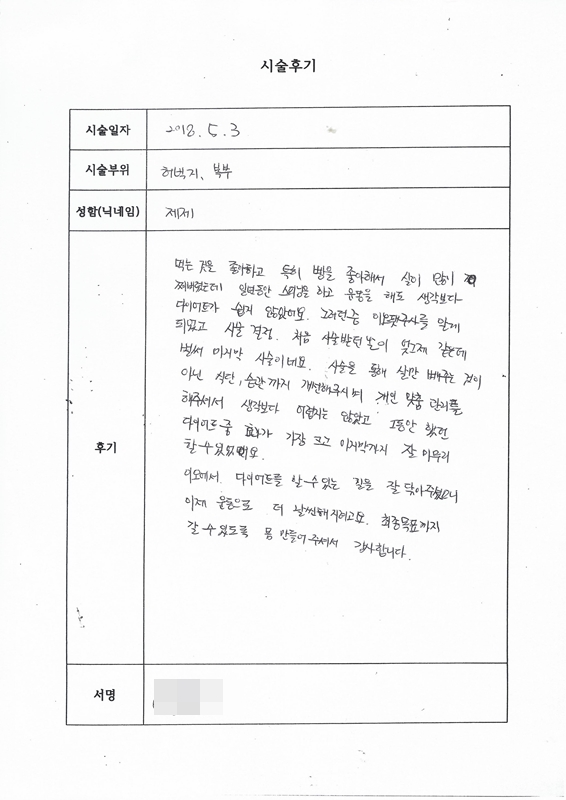 시술후기
시술일자 2018. 5. 3
시술부위 허벅지, 복부
성함(닉네임) 제제
후기
먹는 것을 좋아하고 특히 빵을 좋아해서 살이 많이
찌버렸는데 일년동안 스피닝을 하고 운동을 해도 생각보다
다이어트가 쉽지 않았어요. 그러던중 이오팻주사를 알게
되었고 시술 결정. 처음 시술받던 날이 엊그제 같은데
벌써 마지막 시술이네요. 시술을 통해 살만 빼주는 것이
아닌 식단, 습관까지 개선해주시며 개인 맞춤 관리를
해주셔서 생각보다 어렵지는 않았고 그동안 했던
다이어트 중 효과가 가장 크고 마지막까지 잘 마무리
할 수 있었어요.
이오에서 다이어트를 할 수 있는 길을 잘 닦아주셨으니
이제 운동으로 더 날씬해지려고요. 최종목표까지
갈 수 있도록 몸 만들어 주셔서 감사합니다.
서명